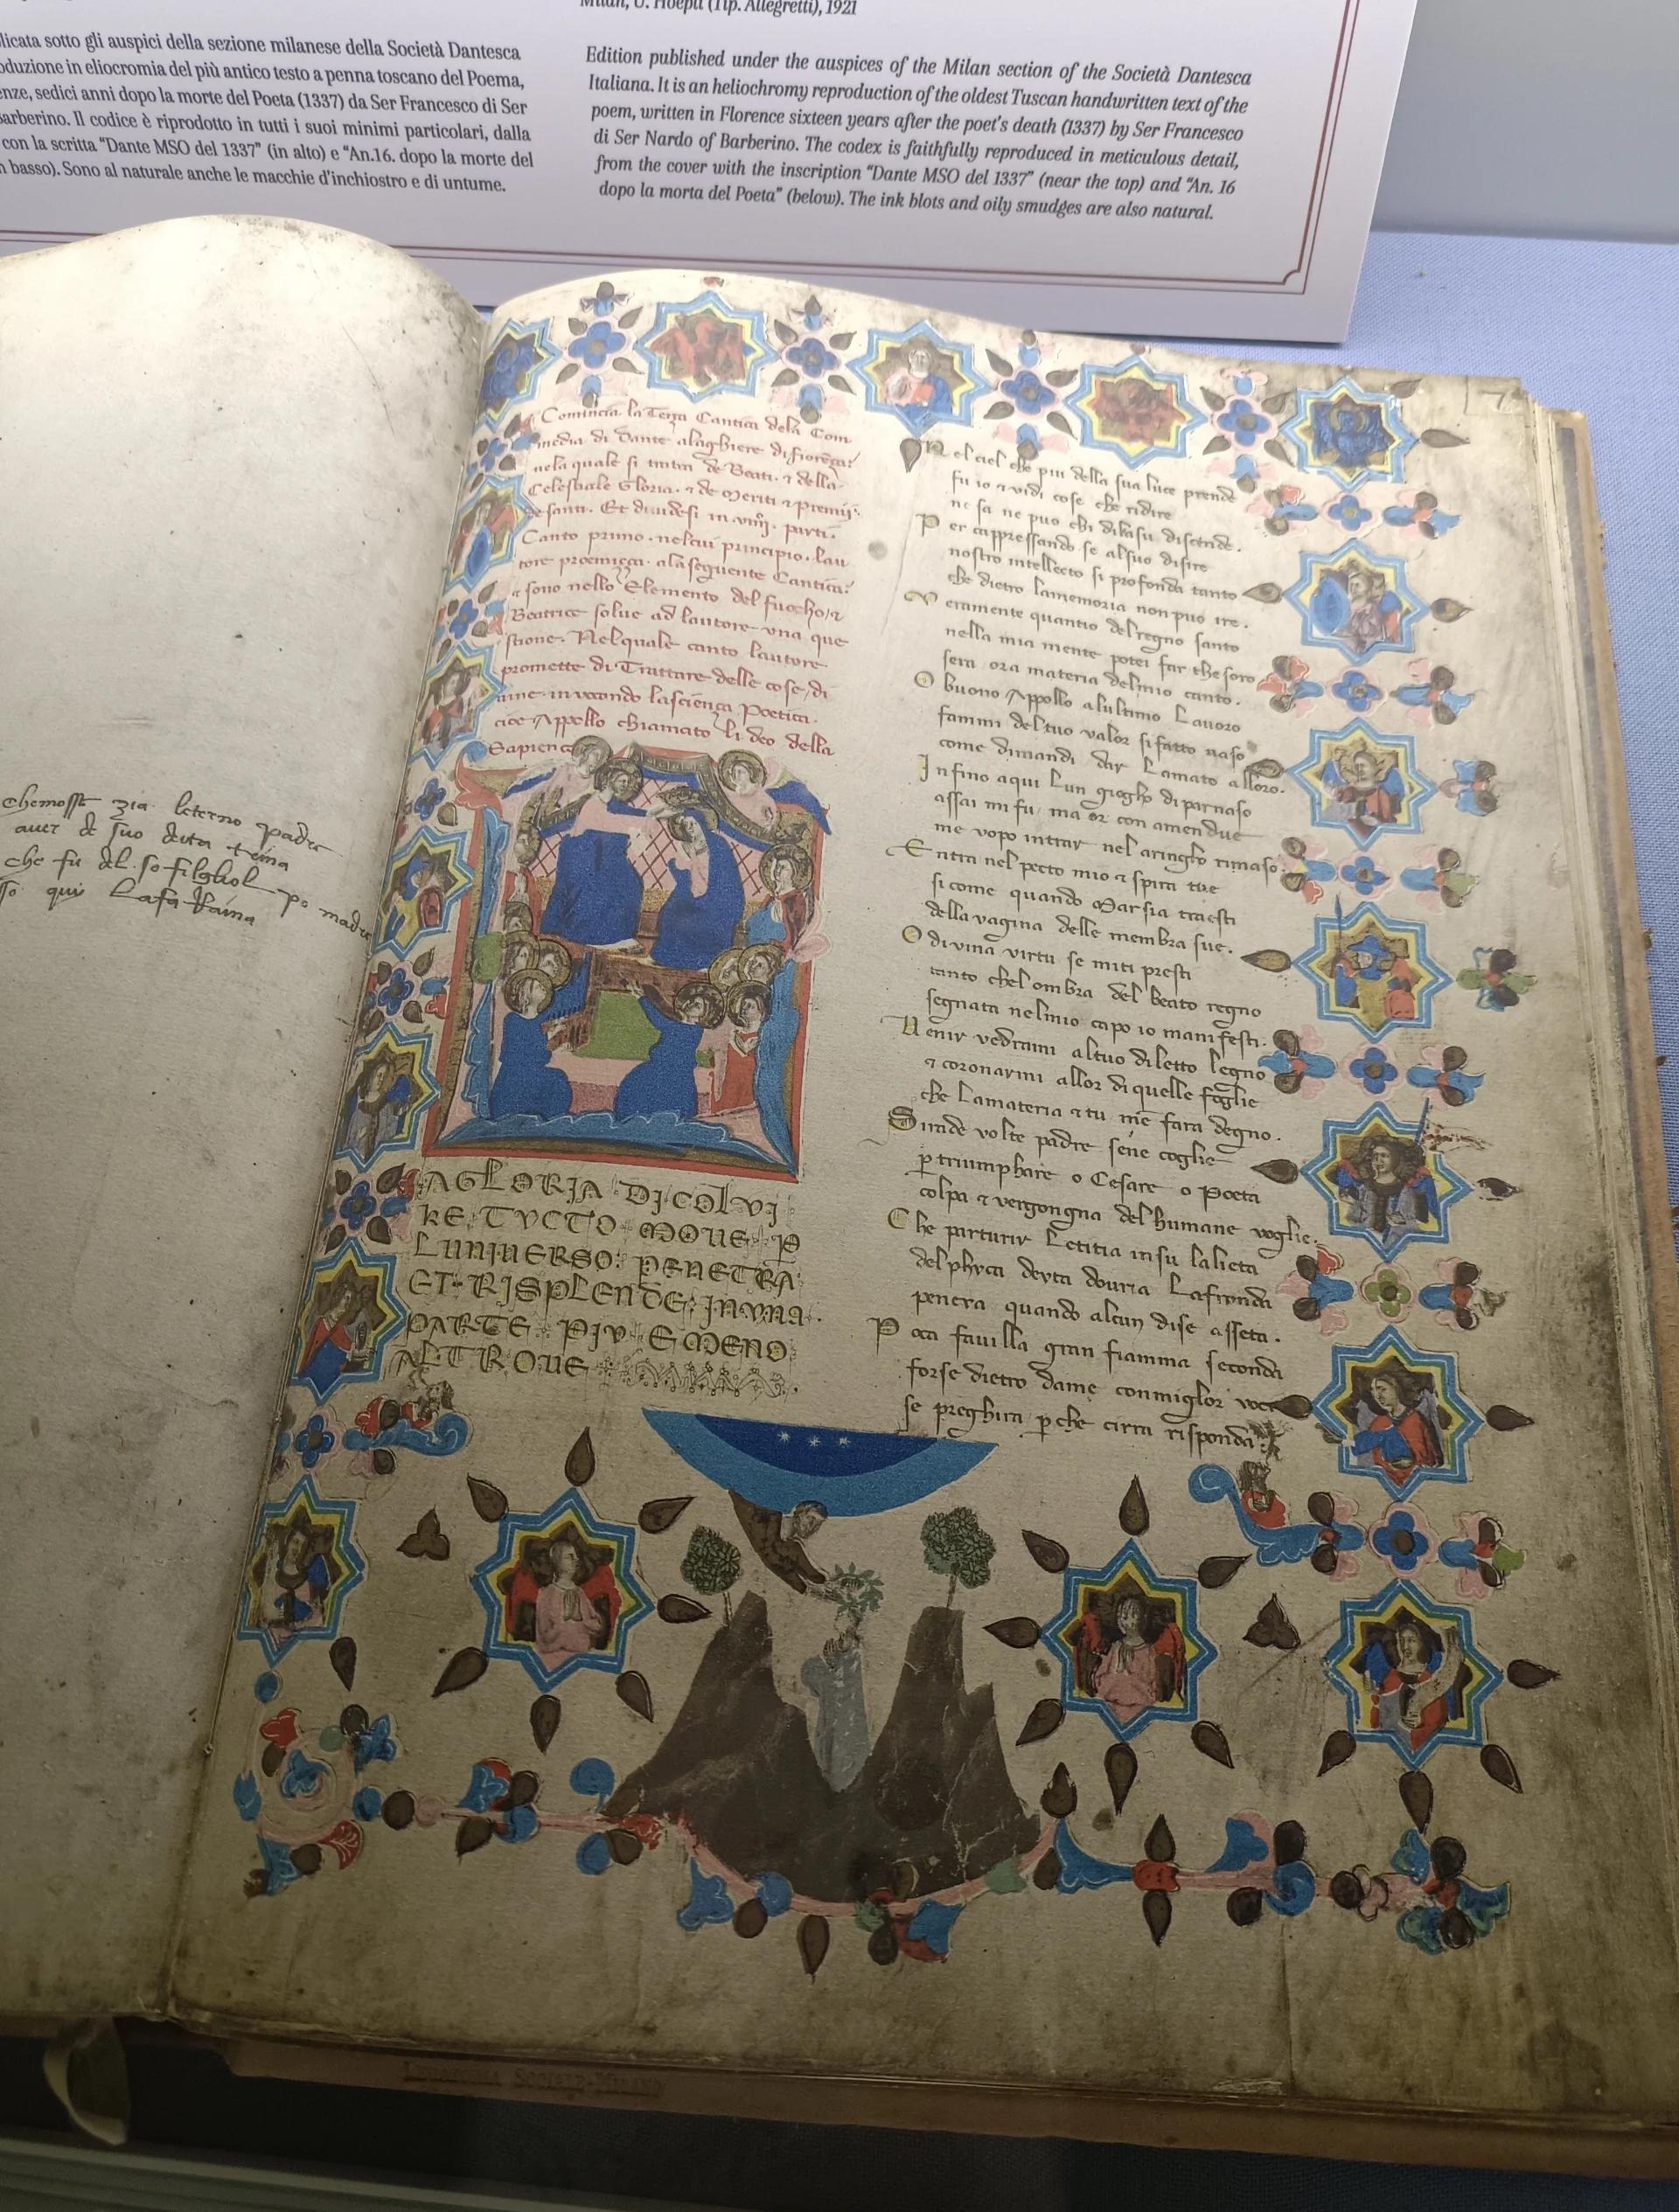 Milan, U. Hoepli (Tip. Allegretti), 1921
licata sotto gli auspici della sezione milanese della Società Dantesca
oduzione in eliocromia del più antico testo a penna toscano del Poema,
enze, sedici anni dopo la morte del Poeta (1337) da Ser Francesco di Ser
Barberino. Il codice è riprodotto in tutti i suoi minimi particolari, dalla
con la scritta “Dante MSO del 1337” (in alto) e “An.16. dopo la morte del
n basso). Sono al naturale anche le macchie d'inchiostro e di untume.
Edition published under the auspices of the Milan section of the Società Dantesca
Italiana. It is an heliochromy reproduction of the oldest Tuscan handwritten text of the
poem, written in Florence sixteen years after the poet's death (1337) by Ser Francesco
di Ser Nardo of Barberino. The codex is faithfully reproduced in meticulous detail,
from the cover with the inscription “Dante MSO del 1337” (near the top) and “An. 16
dopo la morta del Poeta” (below). The ink blots and oily smudges are also natural.
leterno padre
auer de suo
che fu del so
qui
Comincia la Terza Cantica dela Com
media di Dante alaghiere di fiorēça:
nela quale si tratta de Beati. ⁊ della
Celestiale Gloria. ⁊ de meriti ⁊ premij
de santi. Et diuidesi in .viiij. parti.
Canto primo. nelcui principio. lau
tore proemiçça. ala seguente Cantica.
⁊ sono nello Elemento del fuocho, ⁊
Beatrice solue ad lautore una que
stione. Nelquale canto lautore
promette di Trattare delle cose di
uine inuocando lasciença Poetica.
cioe Appollo chiamato li deo della
Sapienc
AGLORIA DICOLVI
KE TVCTO MOVE P
LUNIUERSO PENETRA
ET RISPLENDE INVNA
PARTE PIV E MENO
ALTROUE
Nel ciel che piu della sua luce prende
fu io ⁊ vidi cose che ridire
ne sa ne puo chi dilassu discende.
Per cappressando se alsuo disire
nostro intellecto si profonda tanto
che dietro lamemoria non puo ire.
Veramente quantio delregno santo
nella mia mente potei far thesoro
sera ora materia delmio canto.
O buono Appollo alultimo Lauoro
fammi deltuo valor si fatto uaso
come dimandi dar Lamato alloro.
Infino aqui Lun giogho di parnaso
assai mi fu, ma or con amendue
me vopo intrar nel aringho rimaso.
Entra nel pecto mio ⁊ spira tue
si come quando Marsia traesti
della vagina delle membra sue.
O diuina virtu se miti presti
tanto chel ombra del beato regno
segnata nelmio capo io manifesti.
Uenir vedrami altuo diletto legno
⁊ coronarmi allor di quelle foglie
che Lamateria ⁊ tu me fara degno.
Si rade volte padre sene coglie
p triumphare o Cesare o Poeta
colpa ⁊ vergongna del humane voglie.
Che parturir Letitia insu lalieta
delphyca deyta douria Lafronda
peneia quando alcun dise asseta.
Poca fauilla gran fiamma seconda
forse dietro dame con miglor voci
se preghira pche cirra risponda.